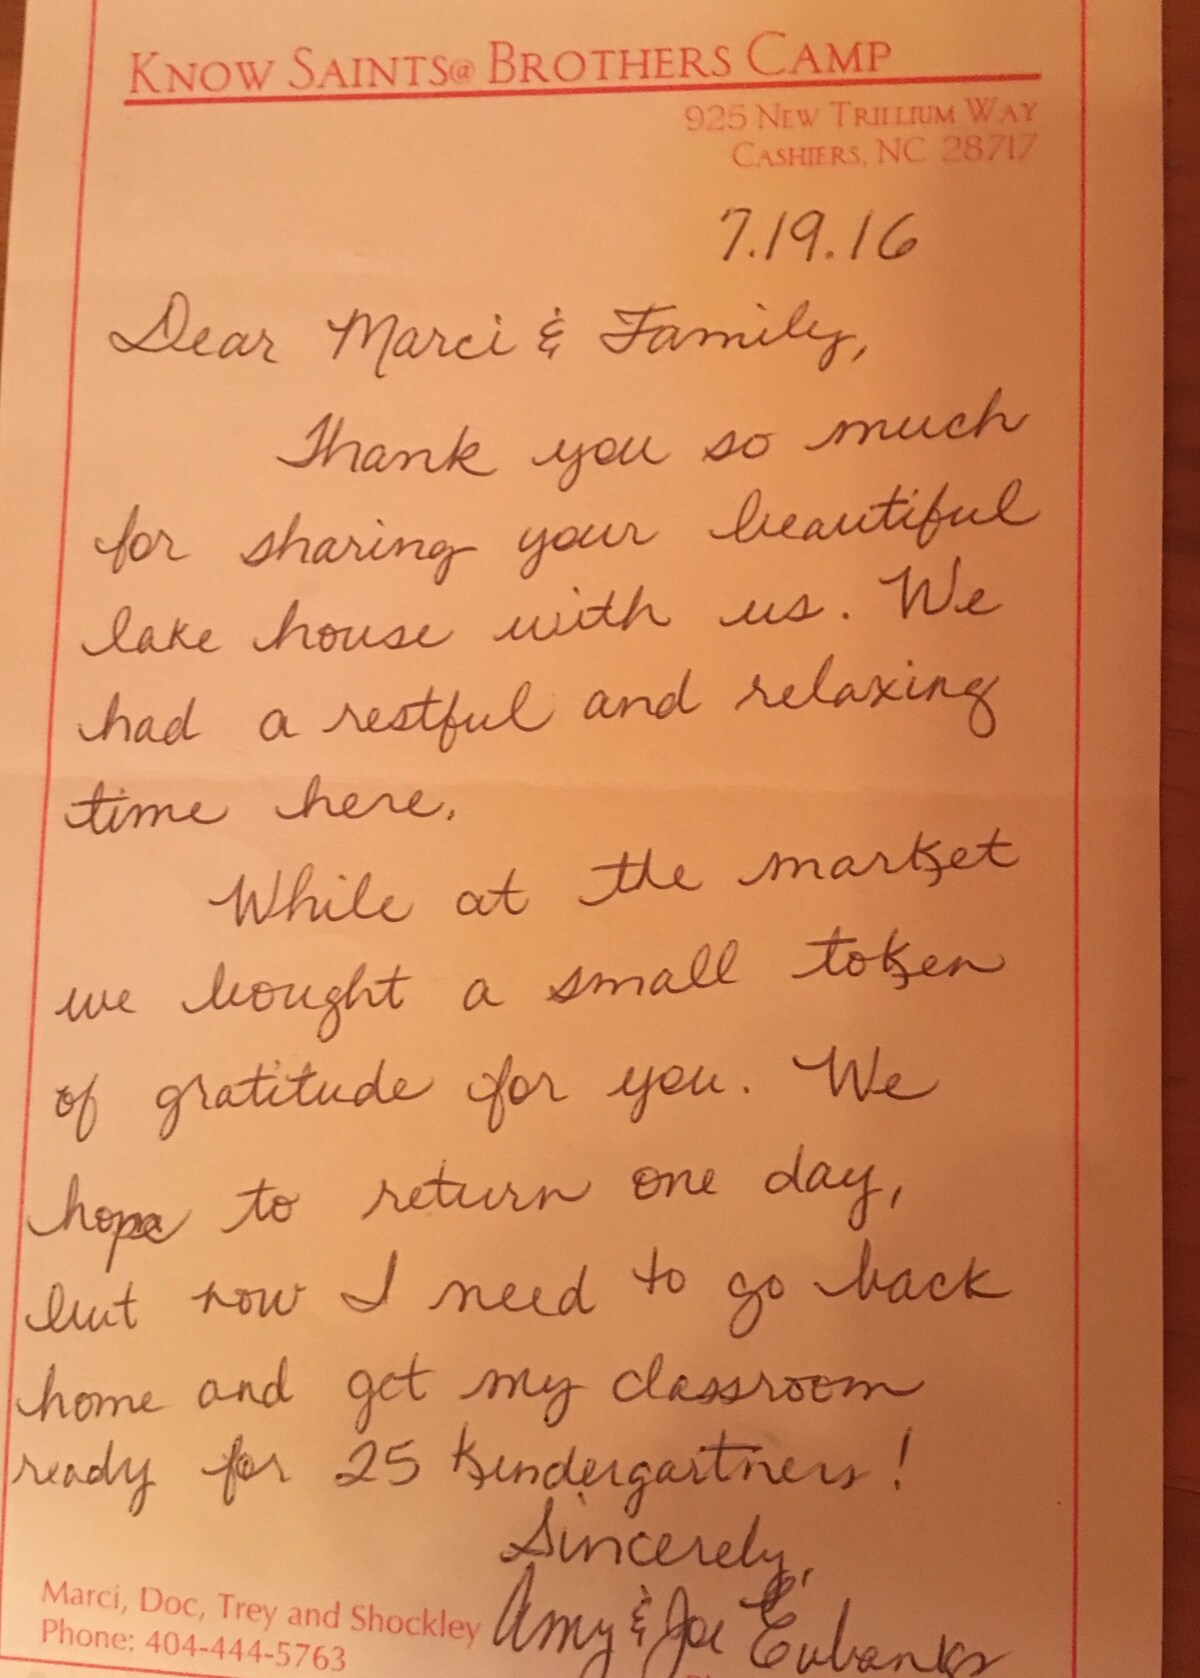 KNOW SAINTS@ BROTHERS CAMP
925 NEW TRILLIUM WAY
CASHIERS, NC 28717
7.19.16
Dear Marci & Family,
Thank you so much
for sharing your beautiful
lake house with us. We
had a restful and relaxing
time here.
While at the market
we bought a small token
of gratitude for you. We
hope to return one day,
but now I need to go back
home and get my classroom
ready for 25 Kindergartners!
Sincerely,
Amy & Joe Eubanks
Marci, Doc, Trey and Shockley
Phone: 404-444-5763